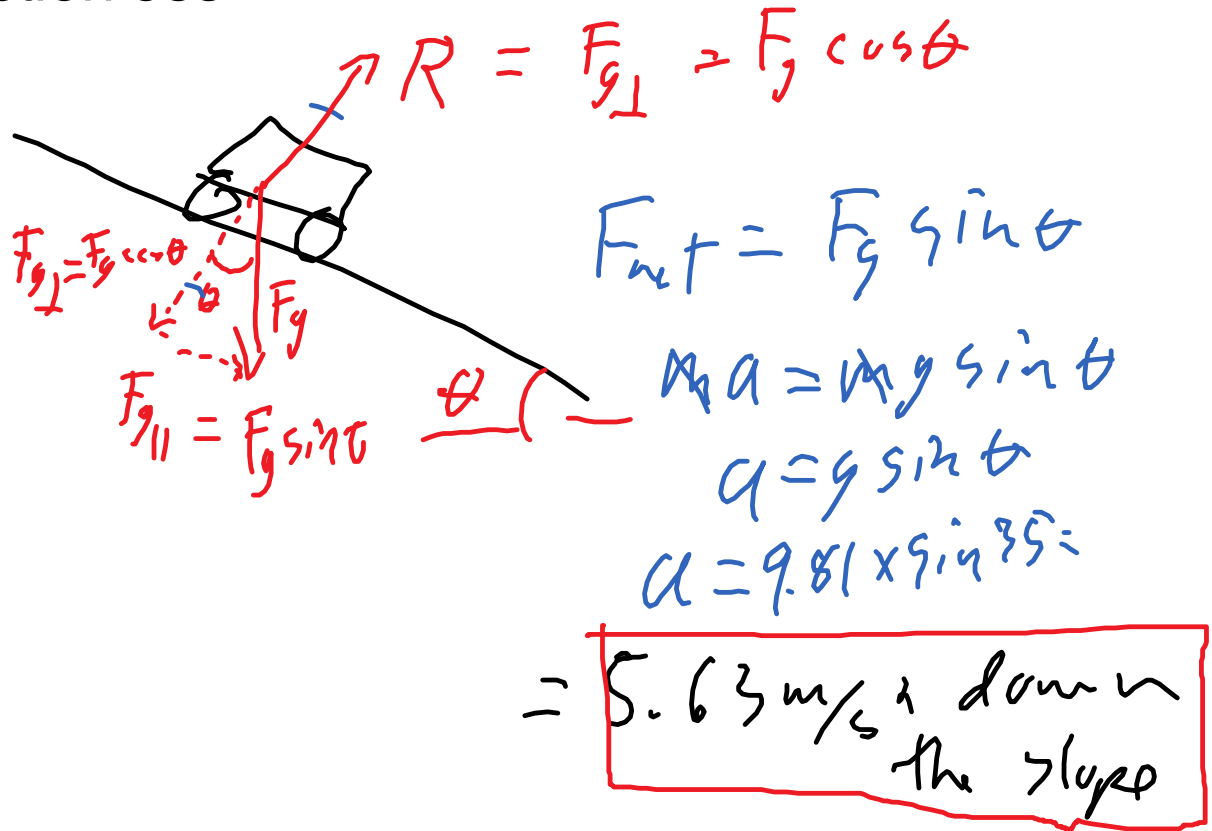 R = F_g⊥ = F_g cosθ
F_g⊥ = F_g cosθ
θ
F_g
F_g|| = F_g sinθ
θ
F_net = F_g sinθ
ma = mg sinθ
a = g sinθ
a = 9.81 x sin35 =
= 5.63 m/s² down
the slope